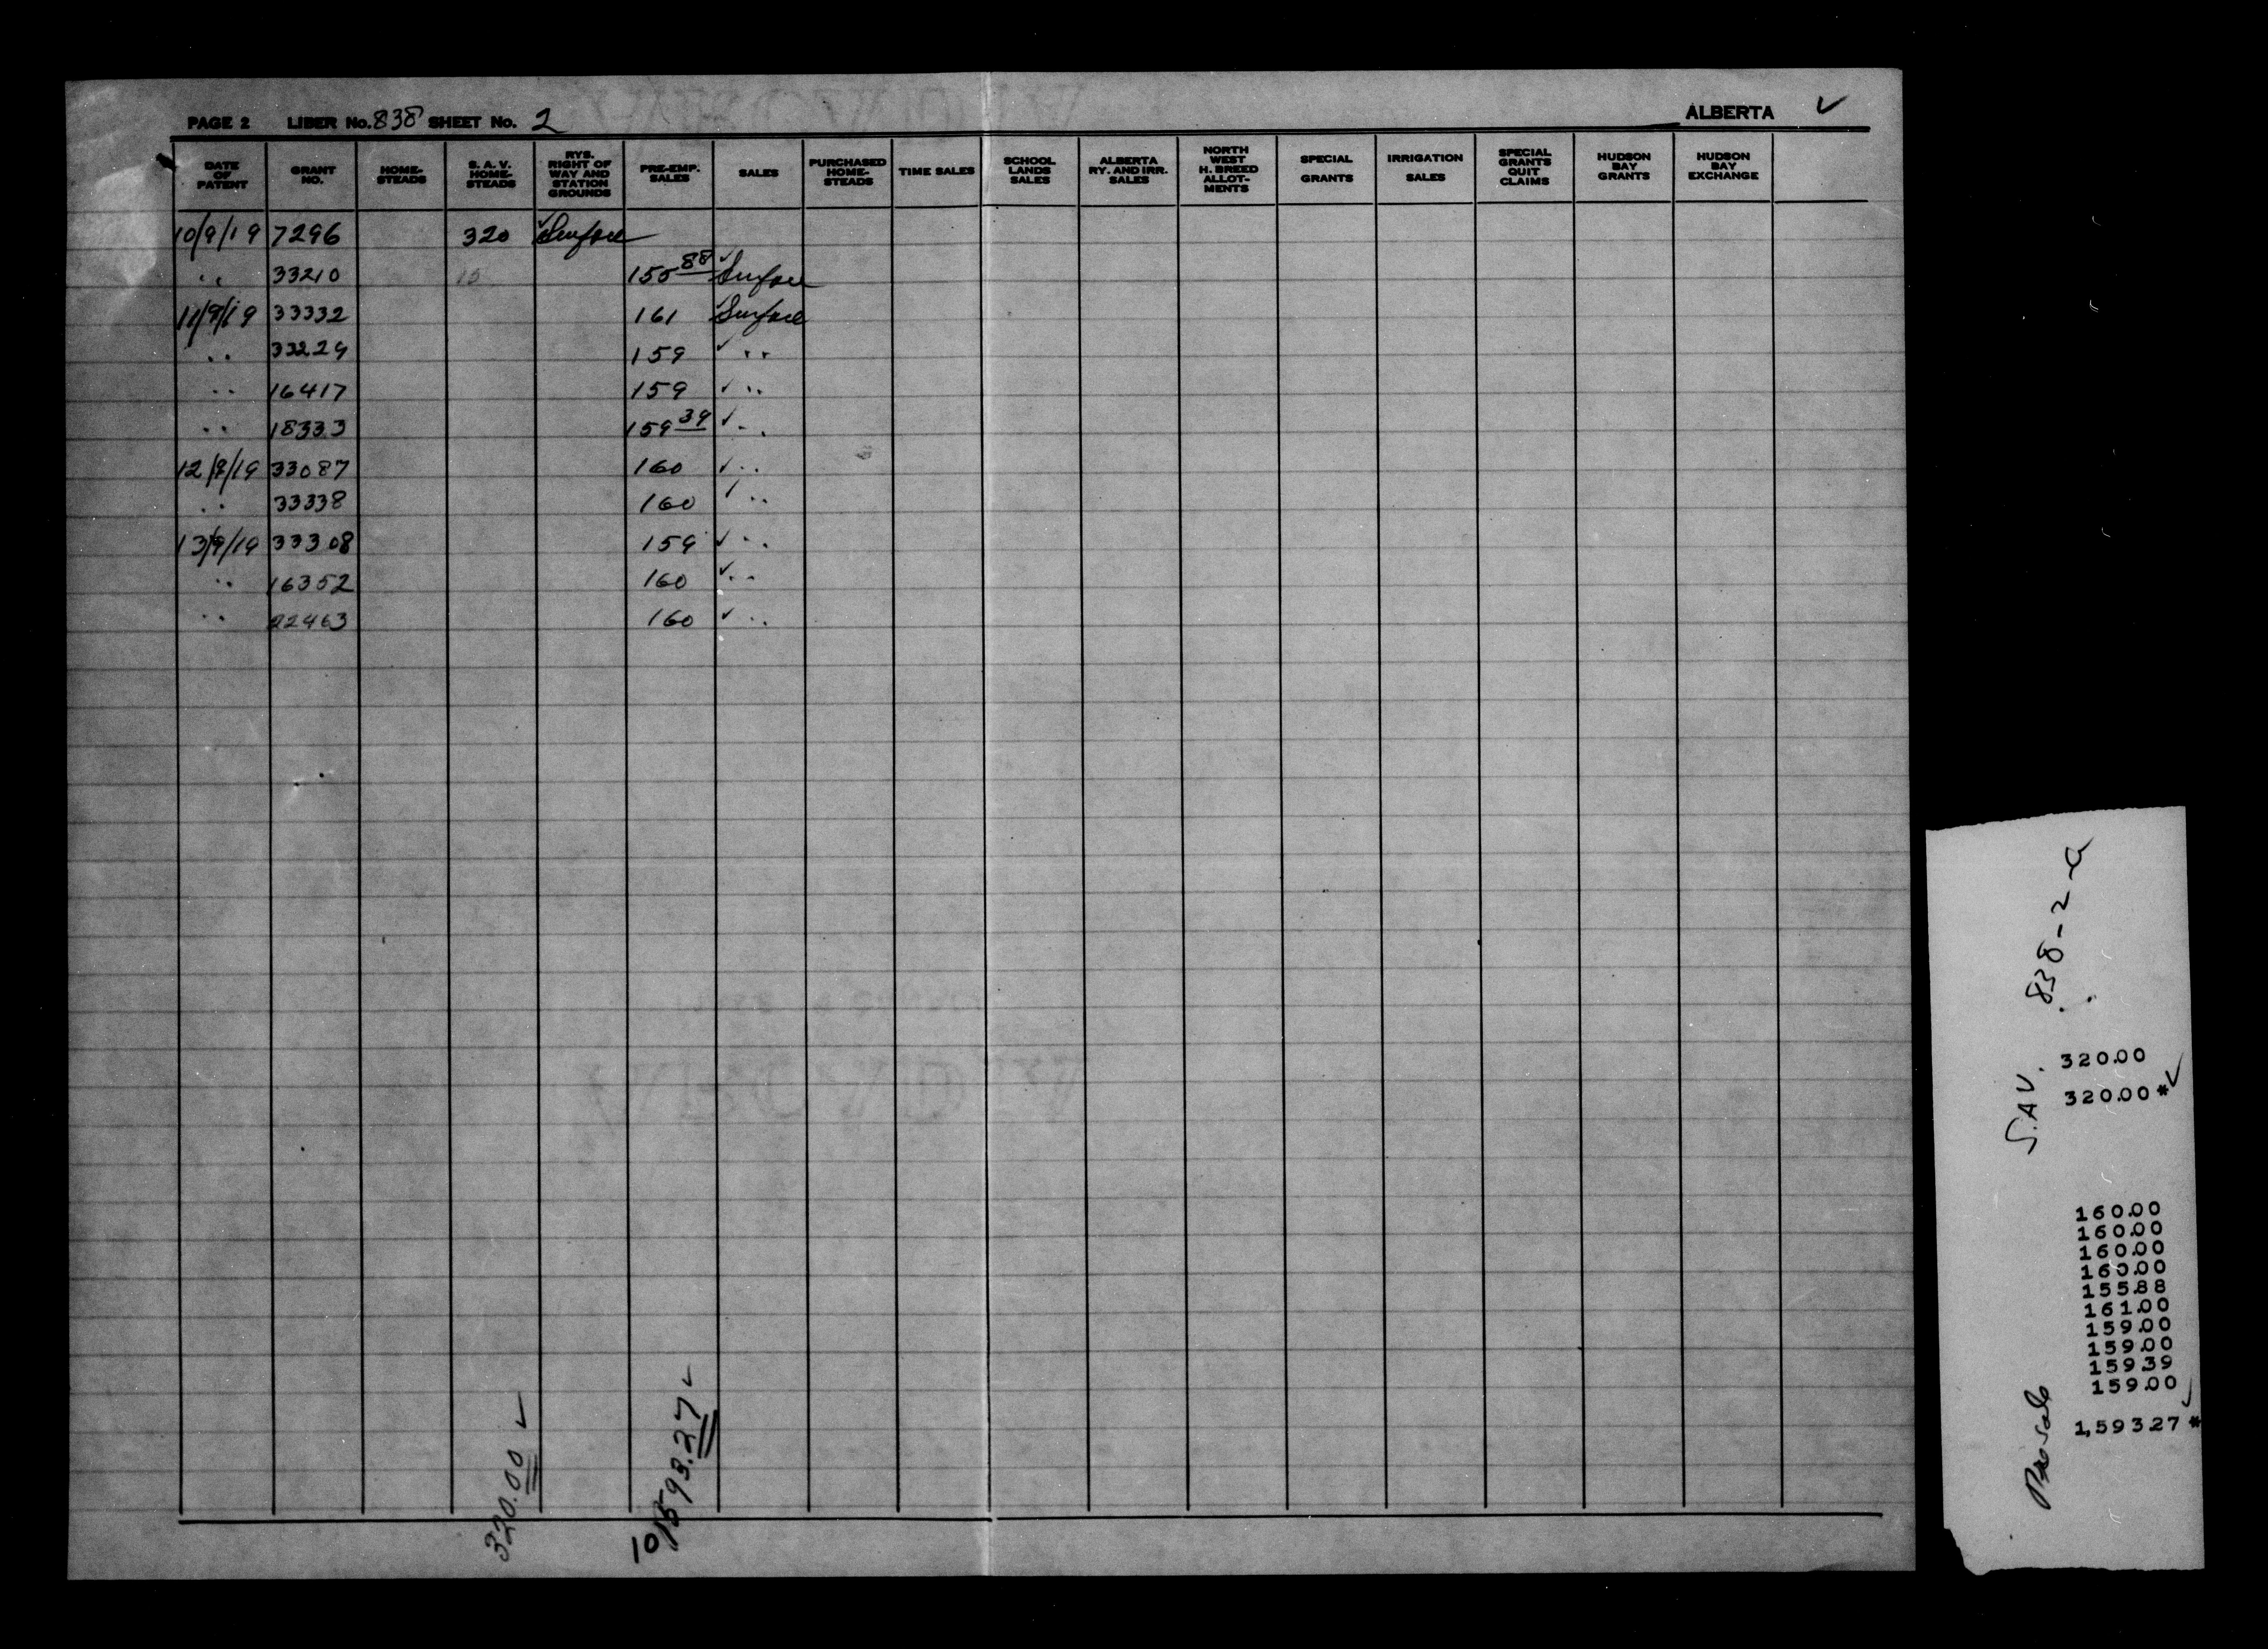 PAGE 2 LIBER No. 838 SHEET No. 2 ALBERTA ✓
DATE OF PATENT | GRANT NO. | HOME-STEADS | S. A. V. HOME-STEADS | RYS. RIGHT OF WAY AND STATION GROUNDS | PRE-EMP. SALES | SALES | PURCHASED HOME-STEADS | TIME SALES | SCHOOL LANDS SALES | ALBERTA RY. AND IRR. SALES | NORTH WEST H. BREED ALLOT-MENTS | SPECIAL GRANTS | IRRIGATION SALES | SPECIAL GRANTS QUIT CLAIMS | HUDSON BAY GRANTS | HUDSON BAY EXCHANGE
10/9/19 7296 320 ✓ Surface
" 33210 155 88 ✓ Surface
11/9/19 33332 161 ✓ Surface
" 33229 159 ✓ "
" 16417 159 ✓ "
" 18333 159 39 ✓ "
12/9/19 33087 160 ✓ "
" 33338 160 ✓ "
13/9/19 33308 159 ✓ "
" 16352 160 ✓ "
" 22463 160 ✓ "
320.00 ✓
10/1593.27 ✓
838-2-a
S.A.V.
320.00
320.00 * ✓
160.00
160.00
160.00
160.00
155.88
161.00
159.00
159.00
159.39
159.00
1,593.27 * ✓